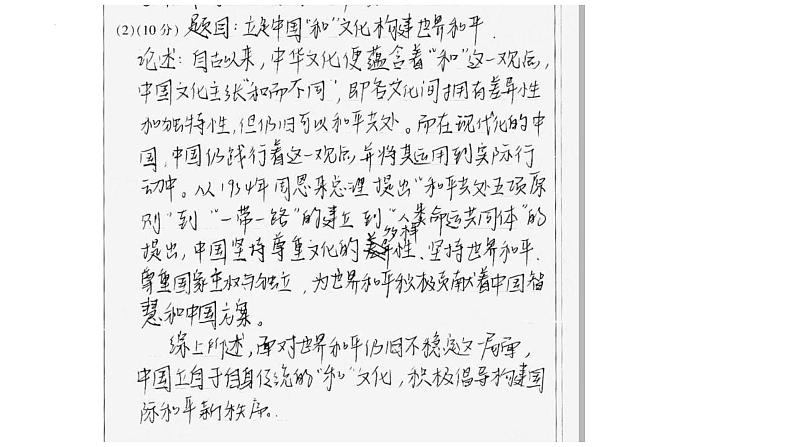 (2)(10分) 题目：立足中国“和”文化构建世界和平.
论述：自古以来，中华文化便蕴含着“和”这一观念，
中国文化主张“和而不同”，即各文化间拥有差异性
和独特性，但仍旧可以和平共处。而在现代化的中
国，中国仍践行着这一观念，并将其运用到实际行
动中。从1954年周恩来总理提出“和平共处五项原
则”到“一带一路”的建立到“人类命运共同体”的
提出，中国坚持尊重文化的多样性、坚持世界和平、
尊重国家主权与独立，为世界和平积极贡献着中国智
慧和中国方案。
综上所述，面对世界和平仍旧不稳定这一局面，
中国立自于自身传统的“和”文化，积极倡导构建国
际和平新秩序。